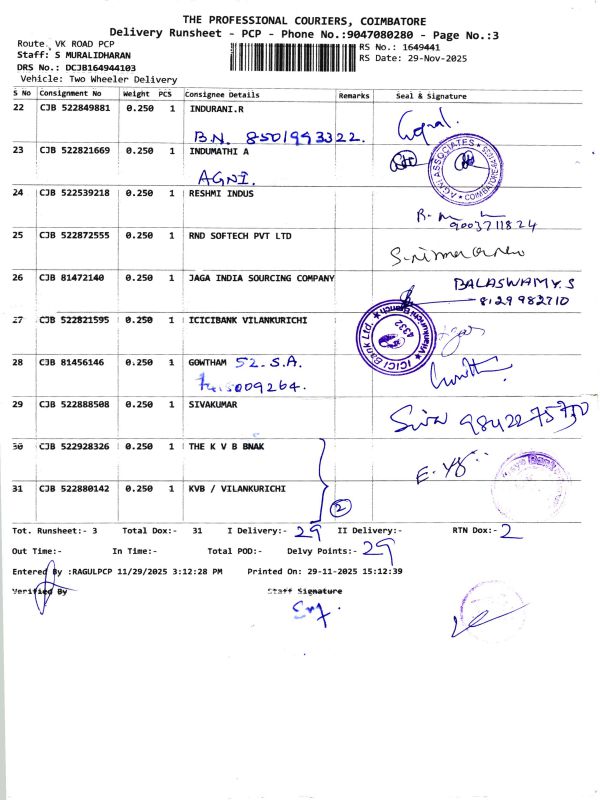 THE PROFESSIONAL COURIERS, COIMBATORE
Delivery Runsheet - PCP - Phone No.:9047080280 - Page No.:3
Route: VK ROAD PCP
RS No.: 1649441
Staff: S MURALIDHARAN
RS Date: 29-Nov-2025
DRS No.: DCJB164944103
Vehicle: Two Wheeler Delivery
S No Consignment No Weight PCS Consignee Details Remarks Seal & Signature
22 CJB 522849881 0.250 1 INDURANI.R
B.N. 8501993322.
Gopal.
23 CJB 522821669 0.250 1 INDUMATHI A
AGNI.
AGNI ASSOCIATES COIMBATORE
24 CJB 522539218 0.250 1 RESHMI INDUS
9003711824
25 CJB 522872555 0.250 1 RND SOFTECH PVT LTD
26 CJB 81472140 0.250 1 JAGA INDIA SOURCING COMPANY
BALASWAMY.S
8129982710
27 CJB 522821595 0.250 1 ICICIBANK VILANKURICHI
ICICI Bank Ltd. Vilankurichi Branch 4332
28 CJB 81456146 0.250 1 GOWTHAM 52. S.A.
29 CJB 522888508 0.250 1 SIVAKUMAR
Siva 9842275730
30 CJB 522928326 0.250 1 THE K V B BNAK
31 CJB 522880142 0.250 1 KVB / VILANKURICHI
2
Tot. Runsheet:- 3 Total Dox:- 31 I Delivery:- 29 II Delivery:- RTN Dox:- 2
Out Time:- In Time:- Total POD:- Delvy Points:- 29
Entered By :RAGULPCP 11/29/2025 3:12:28 PM Printed On: 29-11-2025 15:12:39
Verified By Staff Signature